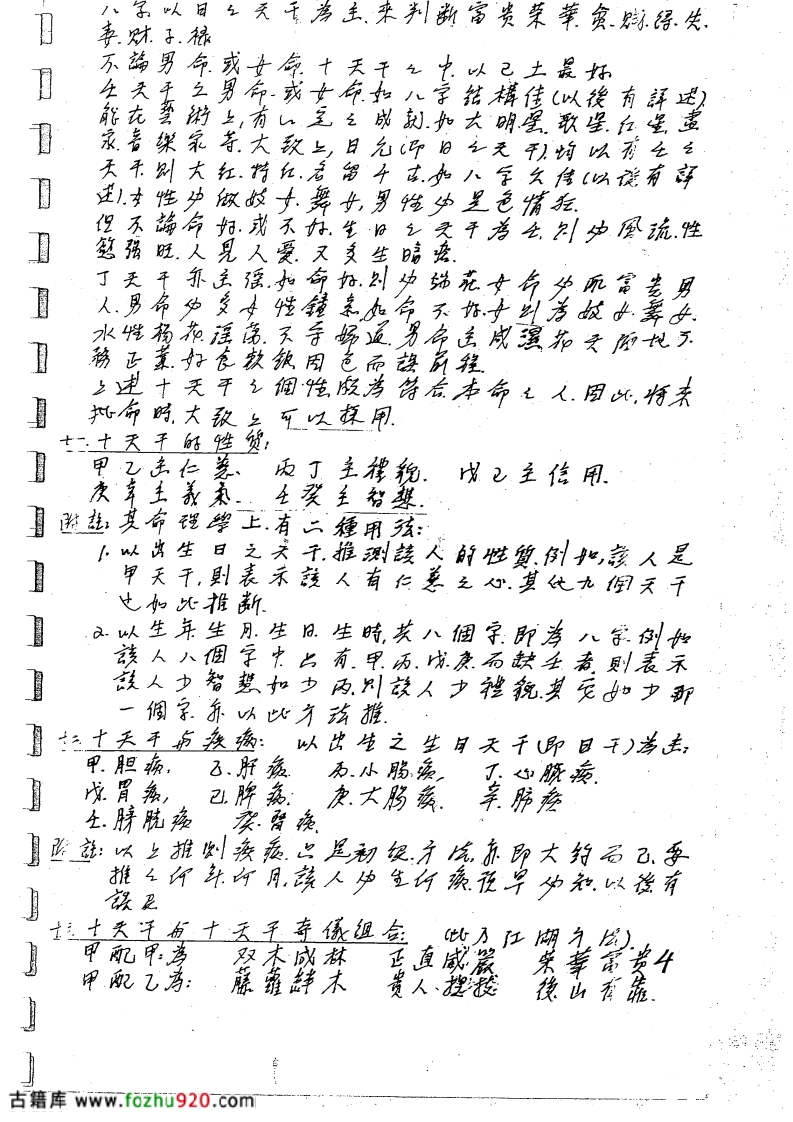 八字以日之天干為主.來判斷富貴榮華.貪.財.得.失.
妻.財.子.祿
不論男命.或女命.十天干之中.以己土最好.
壬天干之男命.或女命.如八字結構佳(以後有評述).
能在藝術上.有一定之成就.如大明星.歌星.紅星.畫
家.音樂家等.大致上.日元(即日之天干).均以有壬之
天干.則大紅.特紅.名留千古.如八字欠佳(以後有評
述).女性必做妓女.舞女.男性必是色情狂.
但不論命好.或不好.生日之天干為壬.則必風流.性
慾強旺.人見人愛.又多生暗瘡.
丁天干亦主淫.如命好.則必端莊.女命必配富貴男
人.男命必多女性鍾柔.如命不好.女則為妓女.舞女.
水性楊花.淫蕩.不守婦道.男命主成濕.花天酒地.不
務正業.好食軟飯.因色而誤前程.
上述十天干之個性.頗為符合本命之人.因此.將來
批命時.大致上可以採用.
十一.十天干的性質:
甲乙主仁慈. 丙丁主禮貌. 戊己主信用.
庚辛主義氣. 壬癸主智慧.
附註:其命理學上.有二種用法:
1.以出生日之天干.推測該人的性質.例如,該人是
甲天干,則表示該人有仁慈之心.其他九個天干
也如此推斷.
2.以生年.生月.生日.生時,共八個字.即為八字.例如
該人八個字中.只有.甲.丙.戊.庚而缺壬者.則表示
該人少智慧.如少丙.則該人少禮貌.其它如少那
一個字.亦以此方法推.
十二.十天干與疾病: 以出生之生日天干(即日干)為主:
甲.胆病. 乙.肝病. 丙.小腸病. 丁.心臟病.
戊.胃病. 己.脾病. 庚.大腸病. 辛.肺病
壬.膀胱病 癸.腎病.
附註:以上推則疾病.只是初級方法.亦即大約而已.要
推之何年.何月.該人必生何病.預早必知.以後有
談及
十三.十天干與十天干奇儀組合: (此乃江湖方法).
甲配甲:為 双木成林 正直威嚴 榮華富貴4
甲配乙為: 藤蘿絆木 貴人.提拔 後山有靠.
古籍库 www.fozhu920.com